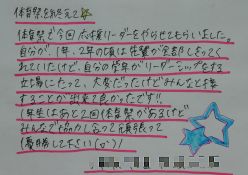 体育祭を終えて
体育祭で今回応援リーダーをやらせてもらいました。
自分が1年、2年の頃は先輩が全部しきってく
れていたけど、自分の学年がリーダーシップをする
立場にたって、大変だったけどみんなと接
することが出来て良かったです!!
1年生はあと2回体育祭があるけど
みんなで協力しあって頑張って
優勝して下さい(^o^)/